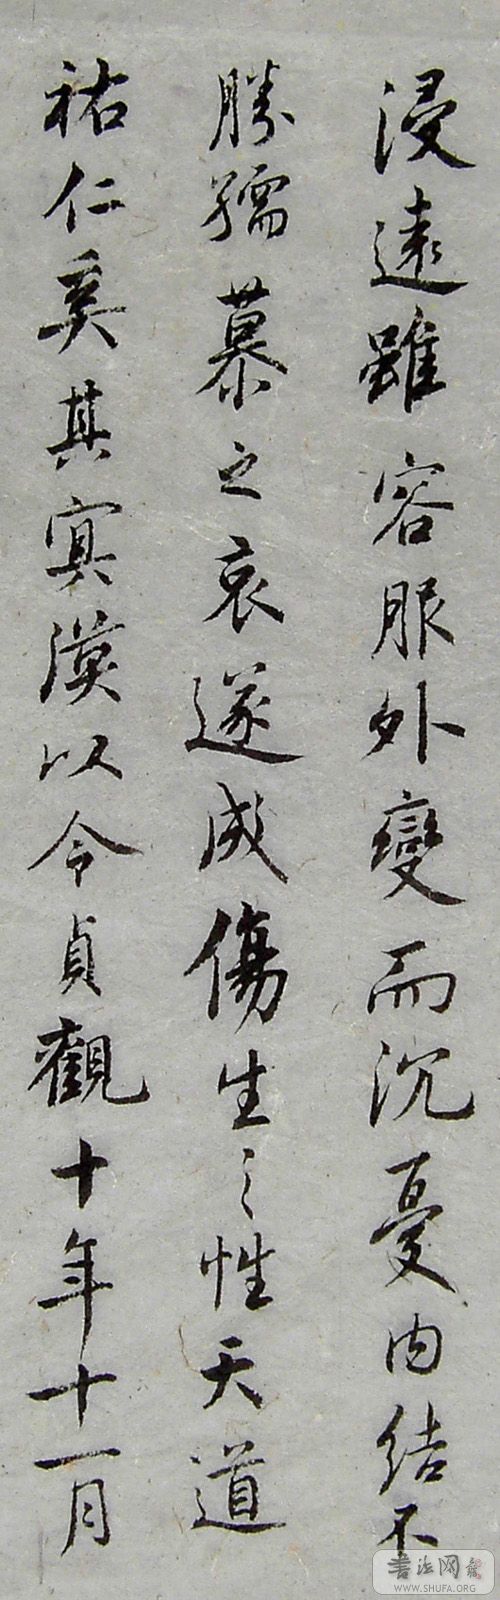 浸遠雖容服外變而沉憂內结不
勝孺慕之哀遂成傷生之性天道
祐仁奚其寞漠以令貞觀十年十一月
書法网
WWW.SHUFA.ORG